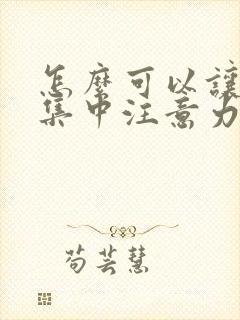 怎麼可以讓
集中注意力
苟芸慧